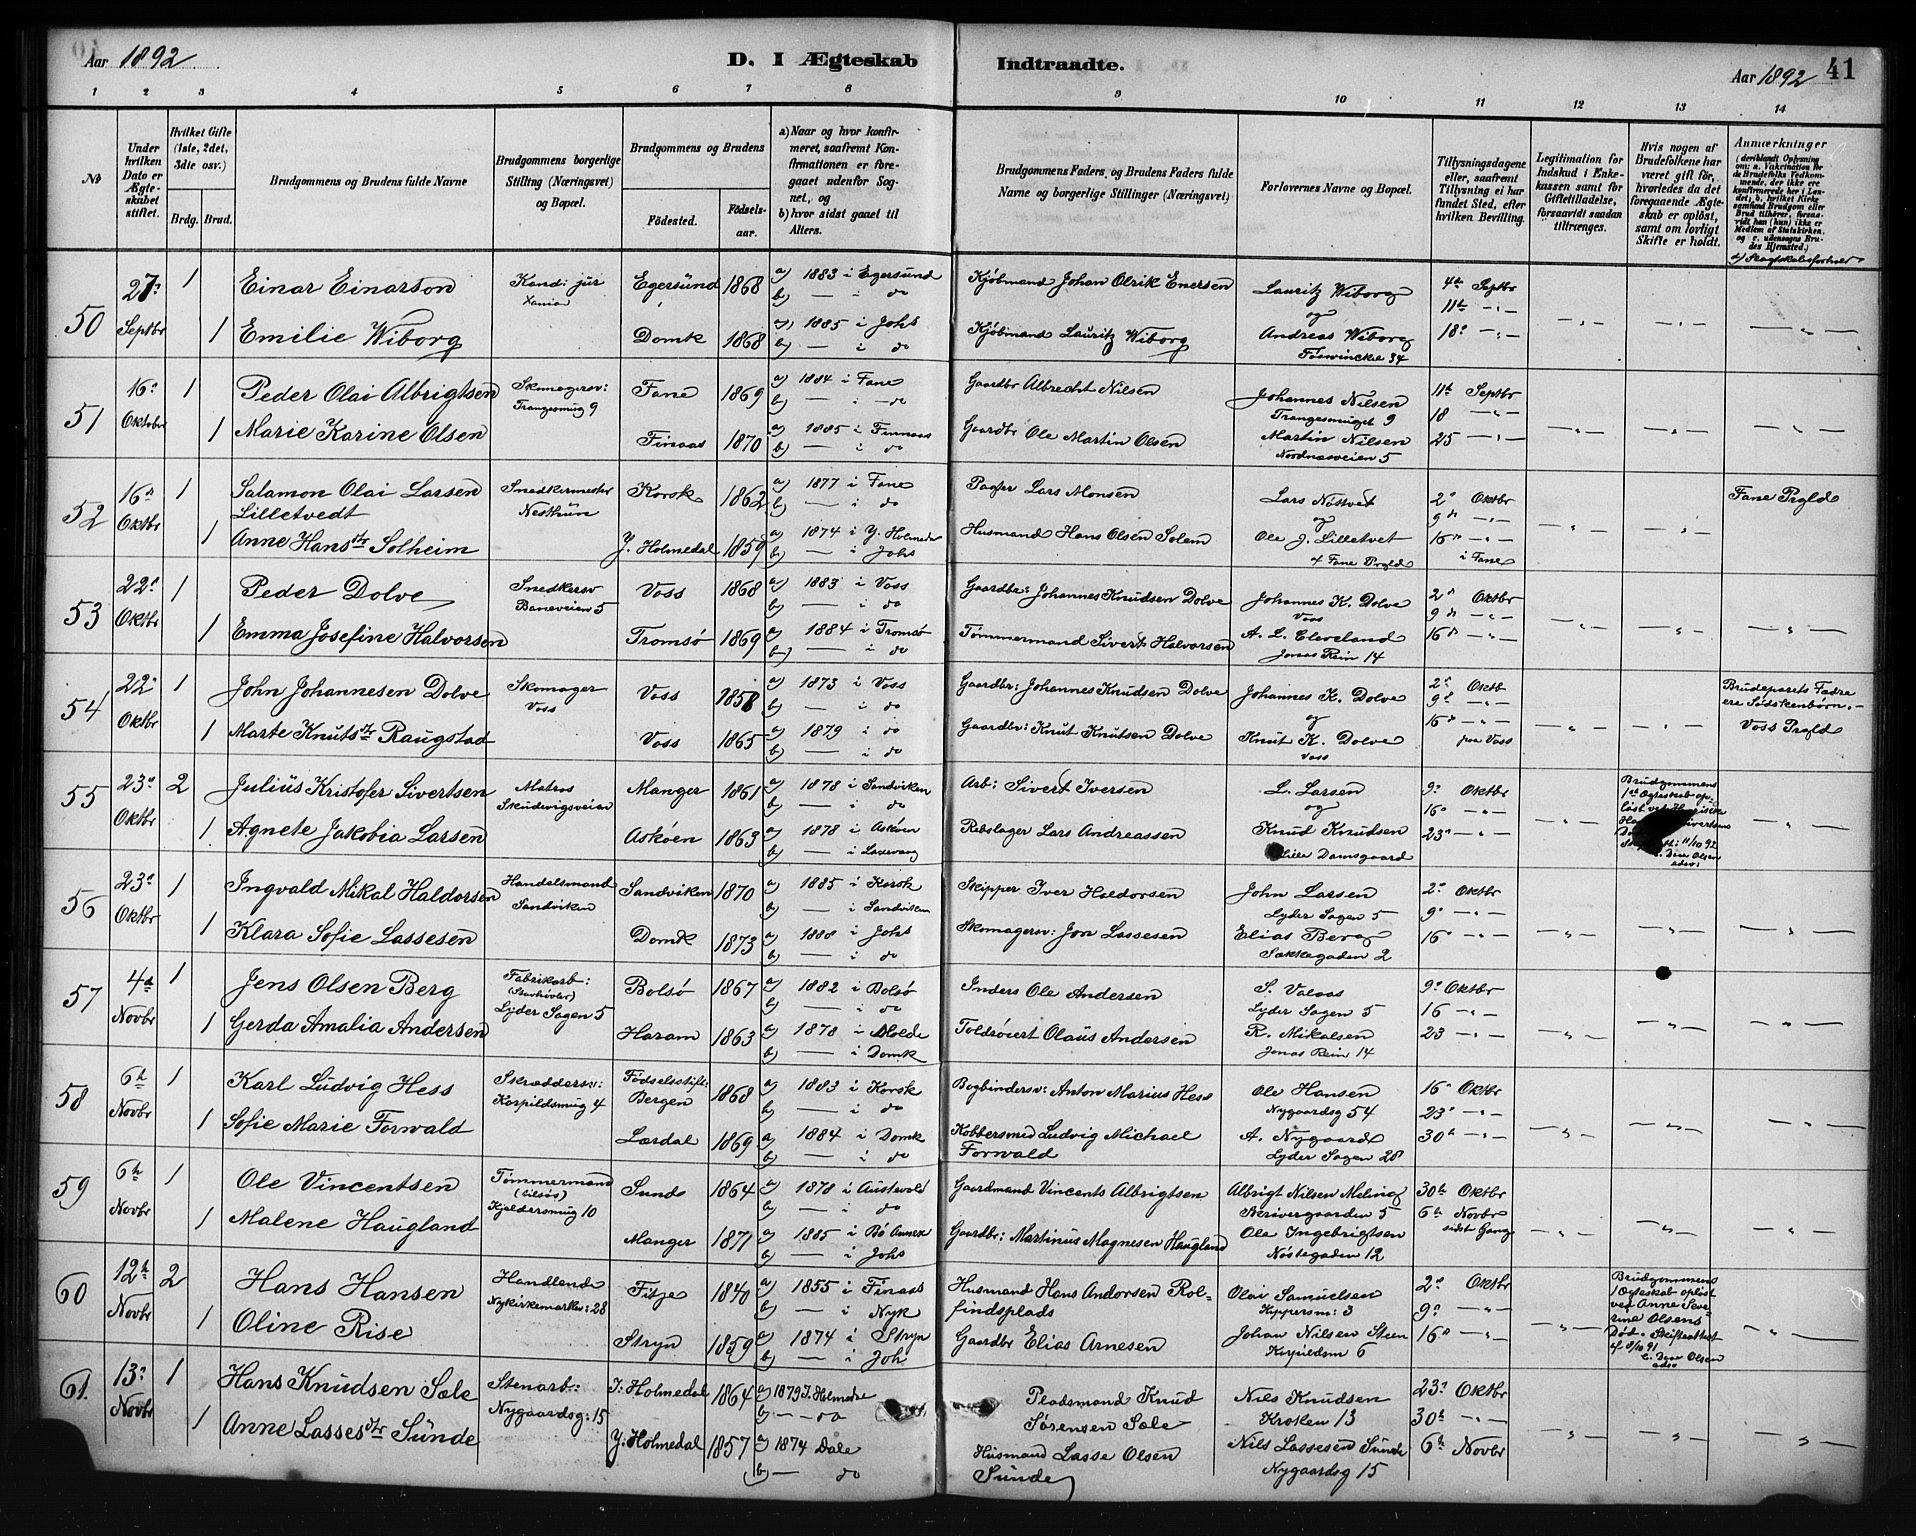 Aar 1892
D. I Ægteskab
Indtraadte.
Aar 1892
41
1 2 3 4 5 6 7 8 9 10 11 12 13 14
No
Under hvilken Dato er Ægteskabet stiftet.
Hvilket Gifte (1ste, 2det, 3die osv.)
Brdg. Brud.
Brudgommens og Brudens fulde Navne
Brudgommens borgerlige Stilling (Næringsvei) og Bopæl.
Brudgommens og Brudens
Fødested. Fødselsaar.
a) Naar og hvor konfirmeret, saafremt Konfirmationen er foregaaet udenfor Sognet, og
b) hvor sidst gaaet til Alters.
Brudgommens Faders, og Brudens Faders fulde Navne og borgerlige Stillinger (Næringsvei)
Forlovernes Navne og Bopæl.
Tillysningsdagene eller, saafremt Tillysning ei har fundet Sted, efter hvilken Bevilling.
Legitimation for Indskud i Enkekassen samt for Giftetilladelse, forsaavidt saadan tiltrænges.
Hvis nogen af Brudefolkene har været gift før, hvorledes da det foregaaende Ægteskab er opløst, samt om lovligt Skifte er holdt.
Anmærkninger
50 27de Septbr 1 Einar Einarson Kand: jur Xania Egersund 1868 a) 1883 i Egersund b) — i do Kjøbmand Johan Olrik Enersen Lauritz Wiborg og 4de Septbr 11te
1 Emilie Wiborg Domk 1868 a) 1885 i Johs b) — i do Kjøbmand Lauritz Wiborg Andreas Wiborg 34 18
51 16 Oktober 1 Peder Olai Albrigtsen Skomagersv: Trangesmug 9 Fane 1869 a) 1884 i Fane b) — do Gaardbr Albrecht Nilsen Johannes Nilsen Trangesmuget 9 11te Septbr 18
1 Marie Karine Olsen Finaas 1870 a) 1885 i Finnaas b) — i do Gaardbr Ole Martin Olsen Martin Nilsen Nordnæsveien 5 25
52 16 Oktbr 1 Salamon Olai Larsen Lilletvedt Snedkermester Nesttun Korsk 1862 a) 1877 i Fane b) — i do Lars Monsen Lars Nøttvet og 2 Oktbr 9 Fane Prgld
1 Anne Hansdtr Solheim Y. Holmedal 1859 a) 1874 i Y. Holmedal b) — i Johs Husmand Hans Olsen Solem Ole J. Lilletvet Fane Prgld 16 i Fane
53 22 Oktbr 1 Peder Dolve Snedkersv Baneveien 5 Voss 1868 a) 1883 i Voss b) — i do Gaardbr: Johannes Knudsen Dolve Johannes K. Dolve Voss 2 Oktbr 9
1 Emma Josefine Halvorsen Tromsø 1869 a) 1884 i Tromsø b) — i do Tømmermand Sivert Halvorsen A. L. Cleveland Jonas Rein 14 16
54 22 Oktbr 1 John Johannesen Dolve Skomager Voss Voss 1858 a) 1873 i Voss b) — i do Gaardbr: Johannes Knudsen Dolve Johannes K. Dolve og 2 Oktb 9 Brudeparets Fædre ere Sødskenbørn.
1 Marte Knutsdtr Raugstad Voss 1865 a) 1879 i do b) — i do Gaardbr: Knut Knutsen Dolve Knut K. Dolve Voss 16 paa Voss Voss Prgld
55 23 Oktbr 2 Julius Kristofer Sivertsen Matros Skudevigsveien Manger 1861 a) 1878 i Sandviken b) — i do Arb: Sivert Iversen L. Larsen og 9 Oktbr 16 Brudgommens 1ste Ægteskab opløst ved
1 Agnete Jakobia Larsen Askøen 1863 a) 1878 i Askøen b) — i Laxevaag Rebslager Lars Andreassen Knud Knudsen Lille Damsgaard 23 11/10 92 Olsen
56 23 Oktbr 1 Ingvald Mikal Haldorsen Handelsmand Sandviken Sandviken 1870 a) 1885 i Korsk b) — i Sandviken Skipper Iver Haldorsen John Larsen Lyder Sagen 5 2 Oktbr 9
1 Klara Sofie Lassesen Domk 1873 a) 1888 i Johs b) — i do Skomagersv: Jon Lassesen Elias Berg Sækkegaden 2 16
57 4de Novbr 1 Jens Olsen Berg Fabrikarb: Lyder Sagen 5 Bolsø 1867 a) 1882 i Bolsø b) — i do Inders Ole Andersen S. Valaas Lyder Sagen 5 9 Oktbr 16
1 Gerda Amalia Andersen Haram 1863 a) 1878 i Molde b) — i Domk Toldroiert Olaus Andersen R. Mikalsen Jonas Rein 14 23
58 6te Novbr 1 Karl Ludvig Hess Skræddersv: Korpildsmug 4 Fødselsstift: Bergen 1868 a) 1883 i Korsk b) — i do Bogbindersv: Anton Marius Hess Ole Hansen Nygaardsg 54 16 Oktbr 23
1 Sofie Marie Forwald Lærdal 1869 a) 1884 i Domk b) — i do Kobbersmed Ludvig Michael Forwald A. Nygaard Lyder Sagen 28 30
59 6te Novbr 1 Ole Vincentsen Tømmermand Kjeldersmug 10 Sund 1864 a) 1878 i Austevold b) — i do Gaardmand Vincents Albrigtsen Albrigt Nilsen Meling 5 30te Oktbr 6te Novbr
1 Malene Haugland Manger 1871 a) 1885 i Bø Annex b) — i Johs Gaardbr: Martinus Magnesen Haugland Ole Ingebrigtsen Nøstegaden 12 sidste Gang
60 12te Novbr 2 Hans Hansen Handlende Nykirkemarken: 28 Fitje 1840 a) 1855 i Finaas b) — i Nyk Husmand Hans Andersen Rolfindsplads Olai Samuelsen Kippersm: 3 2 Oktbr 9 Brudgommens 1 Ægteskab opløst ved Anne Severine Olsens Død. Skifteattest
1 Oline Rise Stryn 1859 a) 1874 i Stryn b) — i Joh Gaardbr Elias Arnesen Johan Nilsen Steen 6 16 af 8/10 91 Olsen
61. 13 Novbr 1 Hans Knudsen Sæle Stenarb: Nygaardsg: 15 I: Holmedal 1864 a) 1879 I. Holmedal b) — do Pladsmand Knud Sørensen Sæle Nils Knudsen Kroken 13 23 Oktbr 30te
1 Anne Lassesdtr Sunde Y. Holmedal 1857 a) 1874 Dale b) — do Husmand Lasse Olsen Sunde Nils Lassesen Sunde Nygaardsg 15 6te Novbr